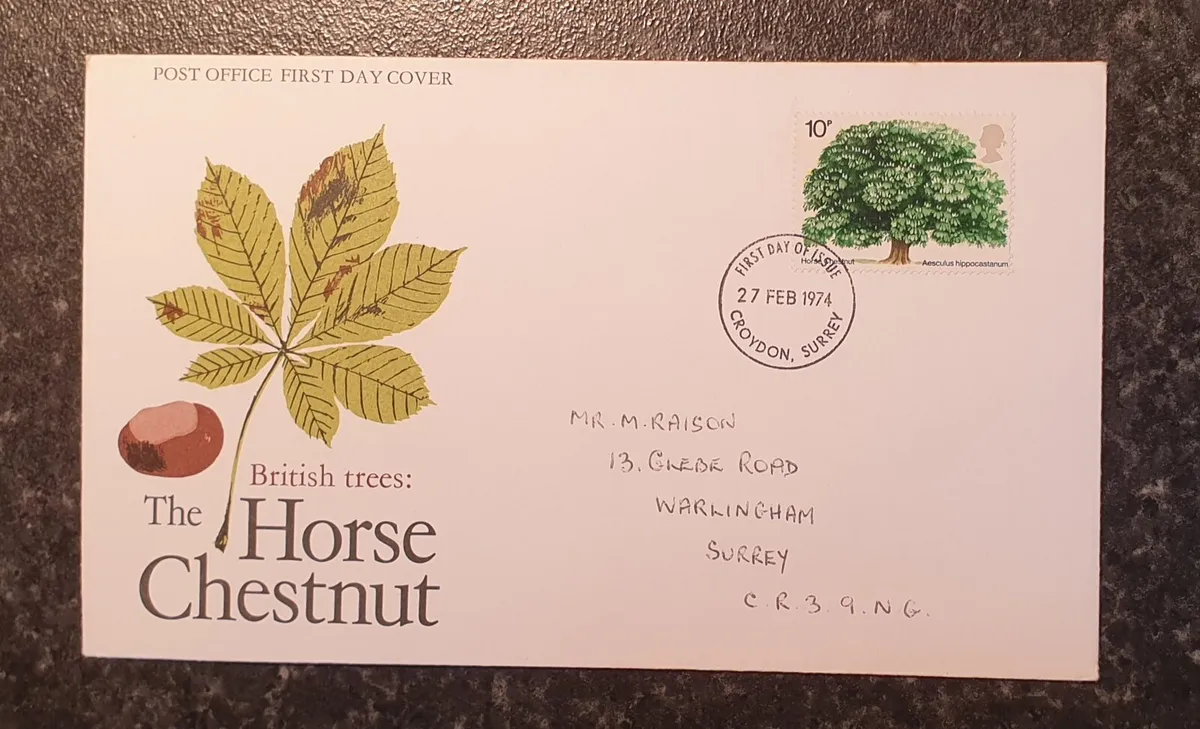 POST OFFICE FIRST DAY COVER
10P
Horse Chestnut
Aesculus hippocastanum
FIRST DAY OF ISSUE
27 FEB 1974
CROYDON, SURREY
MR. M. RAISON
13. GLEBE ROAD
WARLINGHAM
SURREY
C.R.3. 9.N.G.
British trees:
The Horse
Chestnut